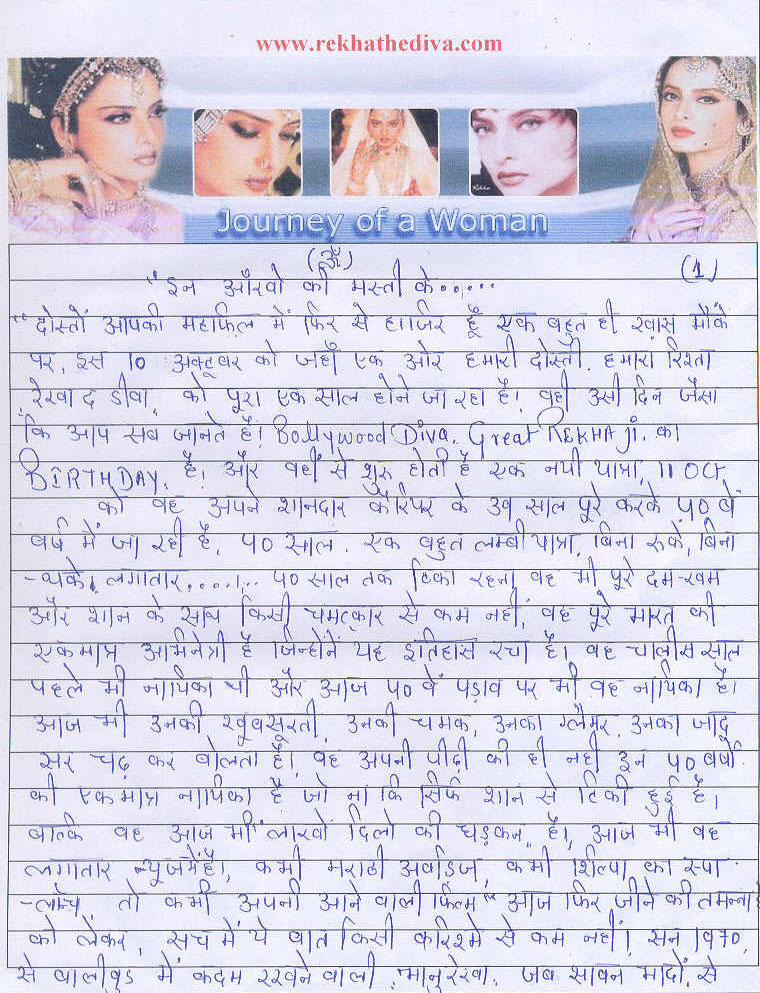 www.rekhathediva.com
Journey of a Woman
(ॐ)
(1)
"इन आँखो की मस्ती के......
"दोस्तों आपकी महफ़िल में फिर से हाजिर हूँ एक बहुत ही खास मौके
पर, इस 10 अक्टूबर को जहाँ एक ओर हमारी दोस्ती. हमारा रिश्ता
रेखा द डीवा, को पूरा एक साल होने जा रहा है। वही उसी दिन जैसा
कि आप सब जानते है! Bollywood Diva. Great REKHA ji. का
BIRTHDAY. है! और वहीं से शुरू होती है एक नयी यात्रा, 11 OCT
को वह अपने शानदार कैरियर के 39 साल पूरे करके ४० वें
वर्ष में जा रही है, ४० साल. एक बहुत लम्बी यात्रा, बिना रुके, बिना
-थके, लगातार........ ४० साल तक टिका रहना, वह भी पूरे दम-खम
और शान के साथ किसी चमत्कार से कम नही, वह पूरे भारत की
एकमात्र अभिनेत्री है जिन्होंने यह इतिहास रचा है। वह चालीस साल
पहले भी नायिका थी और आज ४० वें पड़ाव पर भी वह नायिका है।
आज भी उनकी खूबसूरती, उनकी चमक, उनका ग्लैमर, उनका जादू
सर चढ़ कर बोलता है। वह अपनी पीढी की ही नही इन ४० वर्षो
की एकमात्र नायिका है जो नां कि सिर्फ शान से टिकी हुई है,
बल्कि वह आज भी "लाखों दिलो की धड़कन" है।, आज भी वह
लगातार न्यूज में है।, कभी मराठी अर्वाडज, कभी शिल्पा का स्पा
-लाँन्च, तो कभी अपनी आने वाली फिल्म "आज फिर जीने की तमन्ना है
को लेकर, सच में ये बात किसी करिश्मे से कम नहीं। सन 1970,
से बालीवुड में कदम रखने वाली, भानुरेखा. जब सावन भादों, से